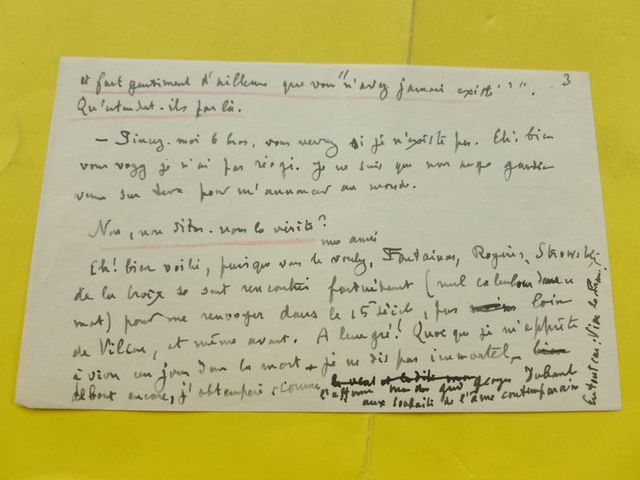 et fort gentiment d'ailleurs que vous "n'avez jamais existé"?". 3
Qu'entendent-ils par là.
— Pincez-moi 6 fois, vous verrez si je n'existe pas. Eh! bien
vous voyez je n'ai pas réagi. Je ne suis que mon ange gardien
venu sur terre pour m'annoncer au monde.
Non, non dites-nous la vérité?
mes amis
Eh! bien voilà, puisque vous le voulez, Fontainas, Rogers,
de la Croix se sont rencontrés fortuitement (nul calembour dans ce
mot) pour me renvoyer dans le 15e siècle, pas loin
de Villon, et même avant. A leur gré! Quoi que je m'apprête
à vivre un jour dans la mort + je ne dis pas immortel
debout encore, j'obtempère comme
l'affirme Georges Duhamel
aux souhaits de l'âme contemporaine